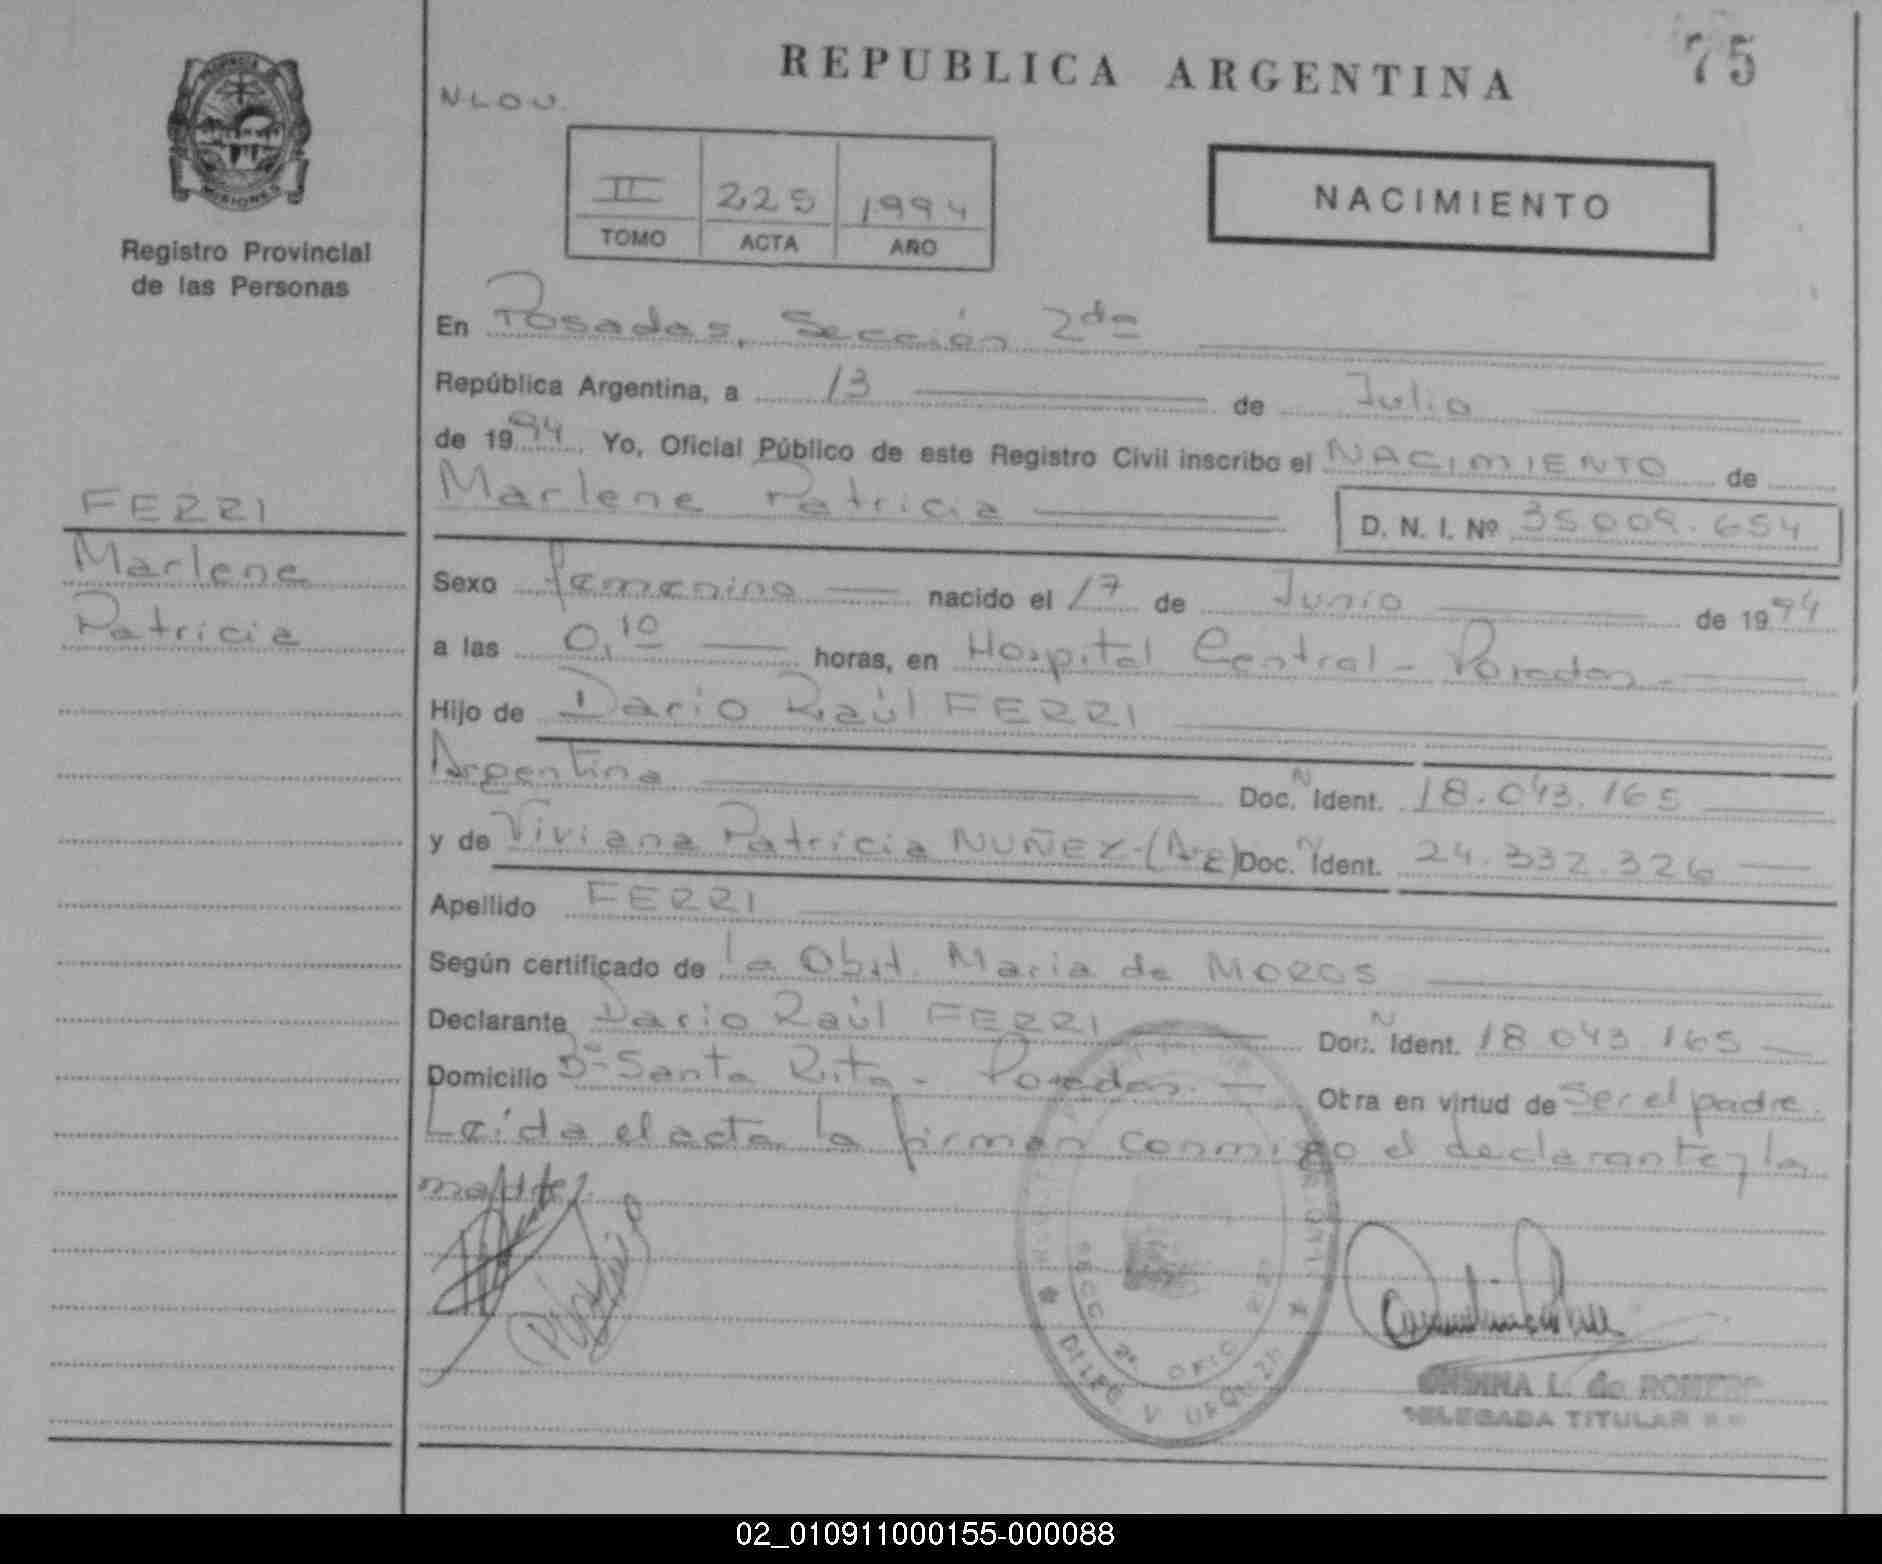 REPUBLICA ARGENTINA
75
PROVINCIA DE
MISIONES
Registro Provincial
de las Personas
II 225 1994
TOMO ACTA AÑO
NACIMIENTO
En Posadas, Sección 2da
República Argentina, a 13 de Julio
de 1994 Yo, Oficial Público de este Registro Civil inscribo el NACIMIENTO de
Marlene Patricia
D. N. I. Nº 35.009.654
FERRI
Marlene
Patricia
Sexo femenino nacido el 17 de Junio de 1994
a las 0,10 horas, en Hospital Central - Posadas -
Hijo de Dario Raúl FERRI
Argentina Doc. N Ident. 18.043.165
y de Viviana Patricia NUÑEZ - Doc. Ident. 24.332.326
Apellido FERRI
Según certificado de la Obst. Maria de MOROS
Declarante Dario Raúl FERRI Doc. N Ident. 18.043.165
Domicilio Bº Santa Rita - Posadas - Obra en virtud de ser el padre.
Leída el acta la firman conmigo el declarante y la
madre.
SECC 2ª
DELEG V URQUIZA
L. de ROMERO
DELEGADA TITULAR
02_010911000155-000088